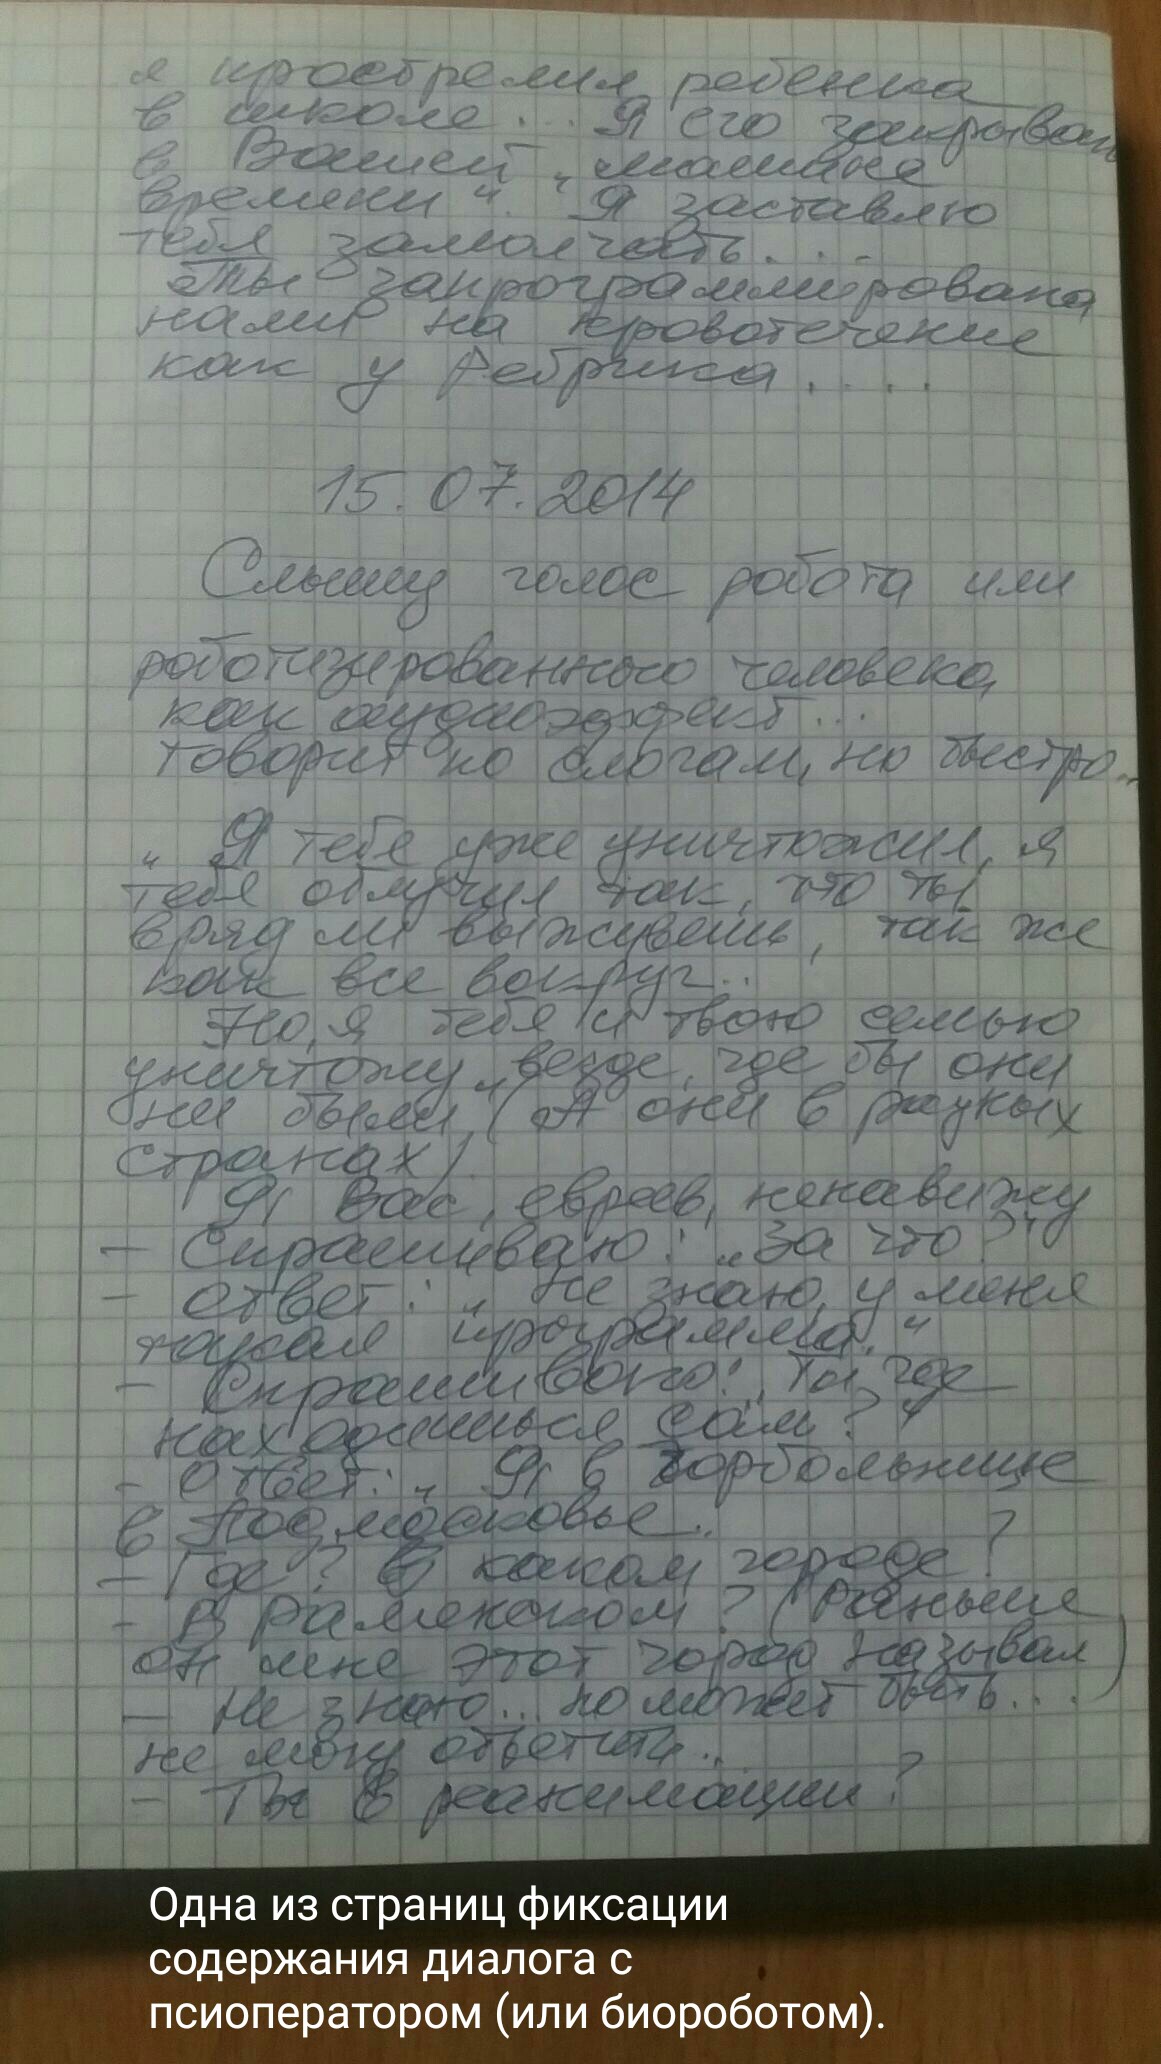 я прострелил ребенка
в школе... Я его закрывал
в Вашей „машине
времени". Я заставлю
тебя замолчать....
Ты запрограммирована
нами на кровотечение
как у Ребрика....
15.07.2014
Слышу голос робота или
роботизированного человека,
как аудиоэффект...
Говорит по слогам, но быстро..
„Я тебя уже уничтожил, я
тебя облучил так, что ты
вряд ли выживешь, так же
как все вокруг..
Но, я тебя и твою семью
уничтожу везде, где бы они
ни были (А они в разных
странах)
Я Вас, евреев, ненавижу"
- Спрашиваю: „За что?"
- Ответ: „Не знаю, у меня
такая программа."
- Спрашиваю: „Ты где
находишься сам?"
- Ответ: „Я в горбольнице
в Подмосковье..
- Где? В каком городе?
- В Раменском? (Раньше
он мне этот город называл)
- Не знаю... но может быть...
не могу ответить..
- Ты в реанимации?
Одна из страниц фиксации
содержания диалога с
псиоператором (или биороботом).